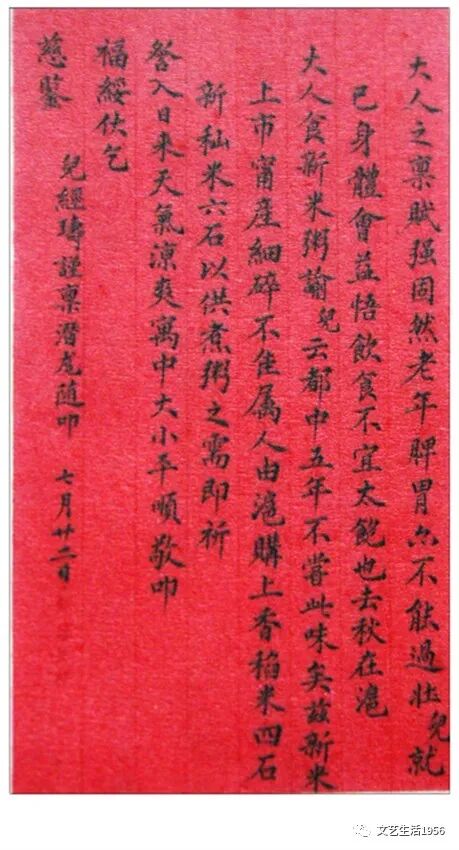 大人之稟賦强固然老年脾胃亦不能過壯兒就
己身體會益悟飲食不宜太飽也去秋在滬
大人食新米粥諭兒云都中五年不嘗此味矣茲新米
上市甯產細碎不佳属人由滬購上香稻米四石
新秈米六石以供煮粥之需即祈
詧入日来天氣凉爽寓中大小平順敬叩
福綏伏乞
慈鑒
兒經疇謹稟潛彪随叩 七月廿二日
文艺生活1956